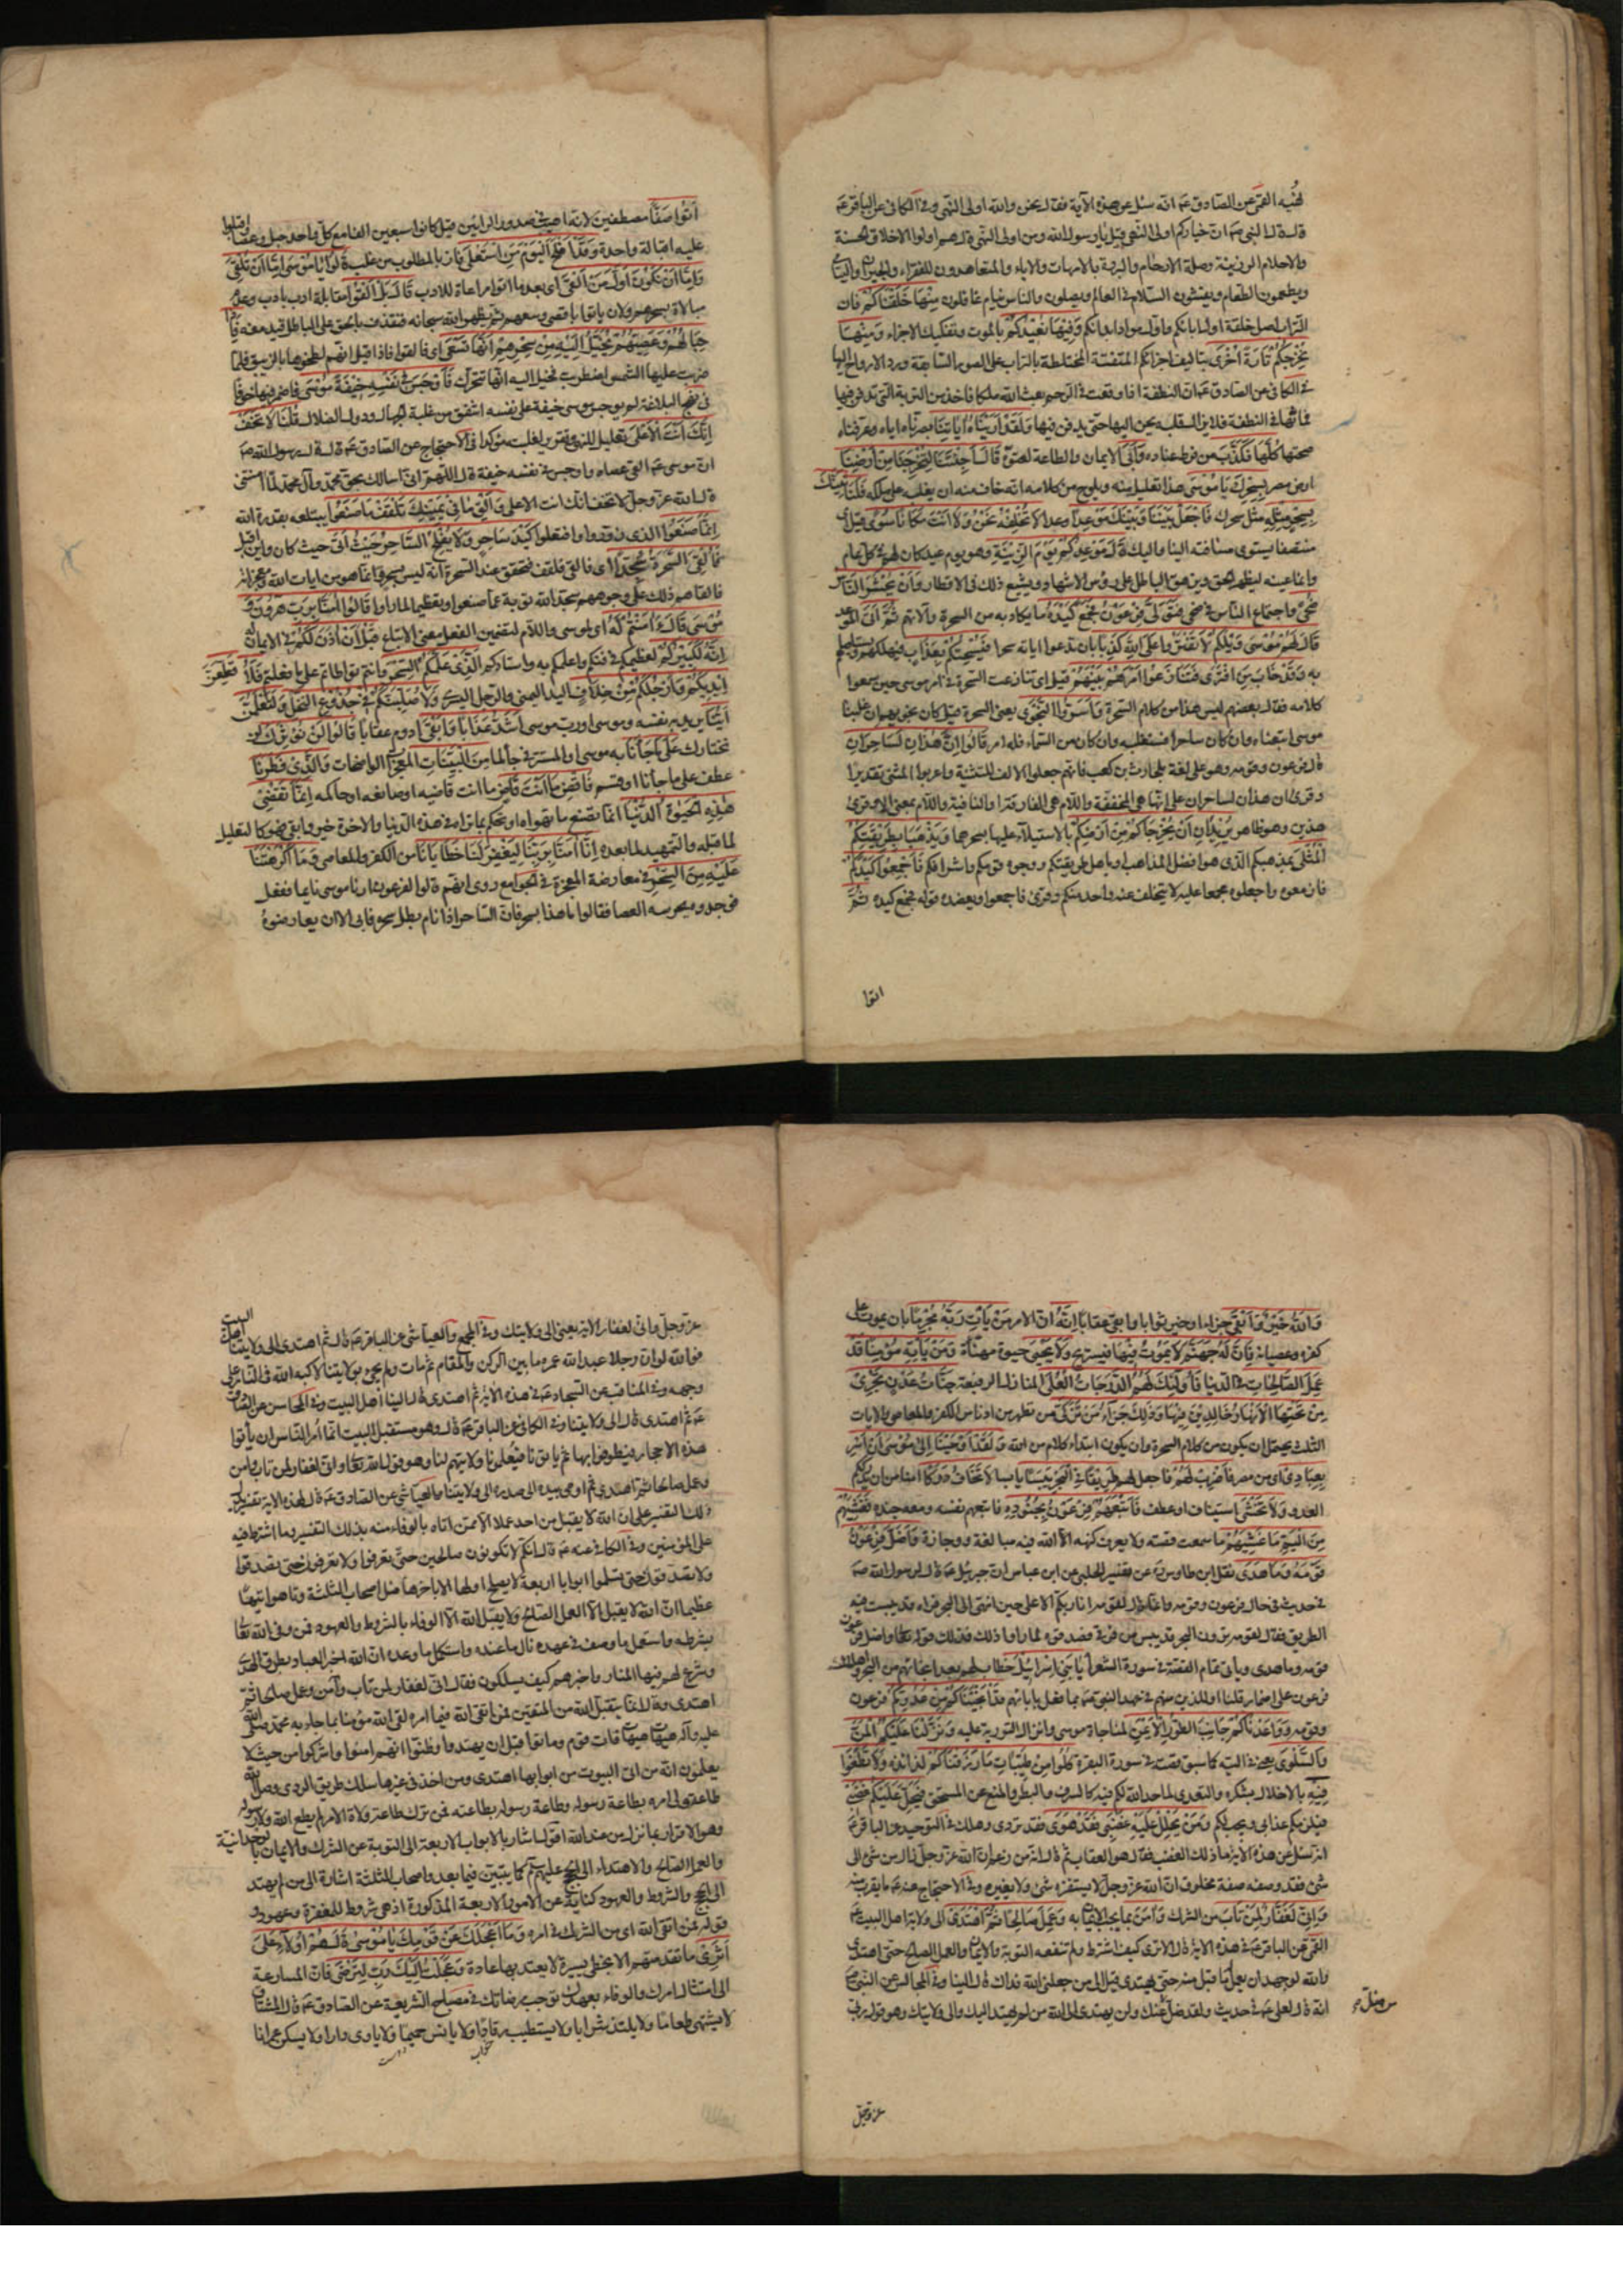 القمي عن الصادق عم انه سئل عن هذه الآية فقال نحن والله اولى النهى وفي الكافي عن الباقر عم
قال قال النبي صم ان خياركم اولى النهى قيل يا رسول الله ومن اولى النهى قال هم اولوا الاخلاق الحسنة
والاحلام الرزينة وصلة الارحام والبررة بالامهات والاباء والمتعاهدون للفقراء والجيران واليتامى
ويطعمون الطعام ويفشون السلام في العالم ويصلون والناس نيام غافلون مِنْهَا خَلَقْنَاكُمْ فان
التراب اصل خلقة اول ابائكم واول مواد ابدانكم وَفِيهَا نُعِيدُكُمْ بالموت وتفكيك الاجزاء وَمِنْهَا
نُخْرِجُكُمْ تَارَةً أُخْرَى بتاليف اجزائكم المتفتتة المختلطة بالتراب على الصور السابقة ورد الارواح اليها
في الكافي عن الصادق عم ان النطفة اذا وقعت في الرحم بعث الله ملكا فاخذ من التربة التي يدفن فيها
فماثها في النطفة فلا يزال قلبه يحن اليها حتى يدفن فيها وَلَقَدْ أَرَيْنَاهُ آيَاتِنَا بصرناه اياه وعرفناه
صحتها كُلَّهَا فَكَذَّبَ من فرط عناده وَأَبَى الايمان والطاعة لعتوه قَالَ أَجِئْتَنَا لِتُخْرِجَنَا مِنْ أَرْضِنَا
ارض مصر بِسِحْرِكَ يَا مُوسَى هذا تعليل منه ويلوح من كلامه انه خاف منه ان يغلبه على ملكه فَلَنَأْتِيَنَّكَ
بِسِحْرٍ مِثْلِهِ مثل سحرك فَاجْعَلْ بَيْنَنَا وَبَيْنَكَ مَوْعِداً وعدا لَا نُخْلِفُهُ نَحْنُ وَلَا أَنْتَ مَكَانًا سُوًى قيل اى
منتصفا يستوى مسافته الينا واليك قَالَ مَوْعِدُكُمْ يَوْمُ الزِّينَةِ وهو يوم عيد كان لهم في كل عام
وانما عينه ليظهر الحق ويزهق الباطل على رؤس الاشهاد ويشيع ذلك في الاقطار وَأَنْ يُحْشَرَ النَّاسُ
ضُحًى واجتماع الناس في ضحى فَتَوَلَّى فِرْعَوْنُ فَجَمَعَ كَيْدَهُ ما يكاد به من السحرة والاتهم ثُمَّ أَتَى الموعد
قَالَ لَهُمْ مُوسَى وَيْلَكُمْ لَا تَفْتَرُوا عَلَى اللَّهِ كَذِبًا بان تدعوا اياته سحرا فَيُسْحِتَكُمْ بِعَذَابٍ فيهلكم ويستاصلكم
به وَقَدْ خَابَ مَنِ افْتَرَى فَتَنَازَعُوا أَمْرَهُمْ بَيْنَهُمْ قيل اى تنازعت السحرة في امر موسى حين سمعوا
كلامه فقال بعضهم ليس هذا من كلام السحرة وَأَسَرُّوا النَّجْوَى يعنى السحرة قيل كان نجويهم ان غلبنا
موسى اتبعناه وان كان ساحرا فسنغلبه وان كان من السماء فله امر قَالُوا إِنْ هَذَانِ لَسَاحِرَانِ
قال فرعون وقومه وهو على لغة بلحارث بن كعب فانهم جعلوا الالف للتثنية واعربوا المثنى تقديرا
وقرئ ان هذان لساحران على انها هي المخففة واللام هي الفارقة او النافية واللام بمعنى الا وقرئ
هذين وهو ظاهر يُرِيدَانِ أَنْ يُخْرِجَاكُمْ مِنْ أَرْضِكُمْ بالاستيلاء عليها بسحرهما وَيَذْهَبَا بِطَرِيقَتِكُمُ
الْمُثْلَى بمذهبكم الذى هو افضل المذاهب او باهل طريقتكم ووجوه قومكم واشرافكم فَأَجْمِعُوا كَيْدَكُمْ
فازمعوه واجعلوه مجمعا عليه لا يتخلف عنه واحد منكم وقرئ فاجمعوا ويعضده قوله فجمع كيده ثُمَّ
ائتوا
ائْتُوا صَفًّا مصطفين لانه اهيب في صدور الرائين قيل كانوا سبعين الفا مع كل واحد حبل وعصا اقبلوا
عليه اقبالة واحدة وَقَدْ أَفْلَحَ الْيَوْمَ مَنِ اسْتَعْلَى فاز بالمطلوب من غلب قَالُوا يَا مُوسَى إِمَّا أَنْ تُلْقِيَ
وَإِمَّا أَنْ نَكُونَ أَوَّلَ مَنْ أَلْقَى اى بعد ما اتوا مراعاة للادب قَالَ بَلْ أَلْقُوا مقابلة ادب بادب وعدم
مبالاة بسحرهم ولان ياتوا باقصى وسعهم ثم يظهر الله سبحانه فيقذف بالحق على الباطل فيدمغه فَإِذَا
حِبَالُهُمْ وَعِصِيُّهُمْ يُخَيَّلُ إِلَيْهِ مِنْ سِحْرِهِمْ أَنَّهَا تَسْعَى اى فالقوا فاذا قيل انهم لطخوها بالزيبق فلما
ضربت عليها الشمس اضطربت فخيل اليه انها تتحرك فَأَوْجَسَ فِي نَفْسِهِ خِيفَةً مُوسَى فاضمر فيها خوفا
في نهج البلاغة لم يوجس موسى خيفة على نفسه اشفق من غلبة الجهال ودول الضلال قُلْنَا لَا تَخَفْ
إِنَّكَ أَنْتَ الْأَعْلَى تعليل للنهى وتقرير لغلبته مؤكدا في الاحتجاج عن الصادق عم قال قال رسول الله صم
ان موسى عم القى عصاه واوجس في نفسه خيفة قال اللهم انى اسالك بحق محمد وآل محمد لما امنتنى
قال الله عز وجل لا تخف انك انت الاعلى وَأَلْقِ مَا فِي يَمِينِكَ تَلْقَفْ مَا صَنَعُوا يبتلعه بقدرة الله
إِنَّمَا صَنَعُوا الذى زوروا وافتعلوا كَيْدُ سَاحِرٍ وَلَا يُفْلِحُ السَّاحِرُ حَيْثُ أَتَى حيث كان واين اقبل
فَأُلْقِيَ السَّحَرَةُ سُجَّدًا اى فالقى فتلقف فتحقق عند السحرة انه ليس بسحر وانما هو من ايات الله ومعجزاته
فالقاهم ذلك على وجوههم سجدا لله توبة عما صنعوا وتعظيما لما راوا قَالُوا آمَنَّا بِرَبِّ هَرُونَ وَ
مُوسَى قَالَ آمَنْتُمْ لَهُ اى لموسى واللام لتضمين الفعل معنى الاتباع قَبْلَ أَنْ آذَنَ لَكُمْ في الايمان له
إِنَّهُ لَكَبِيرُكُمُ لعظيمكم في فنكم واعلمكم به واستادكم الَّذِي عَلَّمَكُمُ السِّحْرَ وانتم تواطاتم على ما فعلتم فَلَأُقَطِّعَنَّ
أَيْدِيَكُمْ وَأَرْجُلَكُمْ مِنْ خِلَافٍ اليد اليمنى والرجل اليسرى وَلَأُصَلِّبَنَّكُمْ فِي جُذُوعِ النَّخْلِ وَلَتَعْلَمُنَّ
أَيُّنَا يريد به نفسه وموسى او رب موسى أَشَدُّ عَذَابًا وَأَبْقَى ادوم عقابا قَالُوا لَنْ نُؤْثِرَكَ لن
نختارك عَلَى مَا جَاءَنَا به موسى او المستتر في جاء لما مِنَ الْبَيِّنَاتِ المعجزات الواضحات وَالَّذِي فَطَرَنَا
عطف على ما جاءنا او قسم فَاقْضِ مَا أَنْتَ قَاضٍ ما انت قاضيه او صانعه او حاكمه إِنَّمَا تَقْضِي
هَذِهِ الْحَيَوةَ الدُّنْيَا انما تصنع ما تهواه او تحكم بما تراه في هذه الدنيا والاخرة خير وابقى فهو كالتعليل
لما قبله والتمهيد لما بعده إِنَّا آمَنَّا بِرَبِّنَا لِيَغْفِرَ لَنَا خَطَايَانَا من الكفر والمعاصى وَمَا أَكْرَهْتَنَا
عَلَيْهِ مِنَ السِّحْرِ في معارضة المعجزة في الجوامع روى انهم قالوا لفرعون ارنا موسى نائما ففعل
فوجدوه يحرسه العصا فقالوا ما هذا بسحر فان الساحر اذا نام بطل سحره فابى الا ان يعارضوه
وَاللَّهُ خَيْرٌ وَأَبْقَى جزاء او خير ثوابا وابقى عقابا إِنَّهُ ان الامر مَنْ يَأْتِ رَبَّهُ مُجْرِمًا بان يموت على
كفره وعصيانه فَإِنَّ لَهُ جَهَنَّمَ لَا يَمُوتُ فِيهَا فيستريح وَلَا يَحْيَى حيوة مهنأة وَمَنْ يَأْتِهِ مُؤْمِنًا قَدْ
عَمِلَ الصَّالِحَاتِ في الدنيا فَأُولَئِكَ لَهُمُ الدَّرَجَاتُ الْعُلَى المنازل الرفيعة جَنَّاتُ عَدْنٍ تَجْرِي
مِنْ تَحْتِهَا الْأَنْهَارُ خَالِدِينَ فِيهَا وَذَلِكَ جَزَاءُ مَنْ تَزَكَّى من تطهر من ادناس الكفر والمعاصى والايات
الثلث يحتمل ان يكون من كلام السحرة وان يكون ابتداء كلام من الله وَلَقَدْ أَوْحَيْنَا إِلَى مُوسَى أَنْ أَسْرِ
بِعِبَادِي اى من مصر فَاضْرِبْ لَهُمْ فاجعل لهم طَرِيقًا فِي الْبَحْرِ يَبَسًا يابسا لَا تَخَافُ دَرَكًا امنا من ان يدرككم
العدو وَلَا تَخْشَى استيناف او عطف فَأَتْبَعَهُمْ فِرْعَوْنُ بِجُنُودِهِ فاتبعهم نفسه ومعه جنده فَغَشِيَهُمْ
مِنَ الْيَمِّ مَا غَشِيَهُمْ ما سمعت قصته ولا يعرف كنهه الا الله فيه مبالغة ووجازة وَأَضَلَّ فِرْعَوْنُ
قَوْمَهُ وَمَا هَدَى نقل ابن طاوس ره عن تفسير الكلبى عن ابن عباس ان جبرئيل عم قال لرسول الله صم
في حديث في حال فرعون وقومه وانما قال لقومه انا ربكم الاعلى حين انتهى الى البحر فراه وقد يبست فيه
الطريق فقال لقومه ترون البحر قد يبس من فرقى فصدقوه لما راوا ذلك فذلك قوله تعالى واضل فرعون
قومه وما هدى وياتى تمام القصة في سورة الشعراء يَا بَنِي إِسْرَائِيلَ خطاب لهم بعد انجائهم من البحر واهلاك
فرعون على اضمار قلنا او للذين منهم في عهد النبى صم بما فعل بابائهم قَدْ أَنْجَيْنَاكُمْ مِنْ عَدُوِّكُمْ فرعون
وقومه وَوَاعَدْنَاكُمْ جَانِبَ الطُّورِ الْأَيْمَنَ لمناجاة موسى وانزال التورية عليه وَنَزَّلْنَا عَلَيْكُمُ الْمَنَّ
وَالسَّلْوَى يعنى في التيه كما سبق قصته في سورة البقرة كُلُوا مِنْ طَيِّبَاتِ مَا رَزَقْنَاكُمْ لذائذه وَلَا تَطْغَوْا
فِيهِ بالاخلال بشكره والتعدى لما حد الله لكم فيه كالسرف والبطر والمنع عن المستحق فَيَحِلَّ عَلَيْكُمْ غَضَبِي
فيلزمكم عذابى ويجب لكم وَمَنْ يَحْلِلْ عَلَيْهِ غَضَبِي فَقَدْ هَوَى فقد تردى وهلك في التوحيد عن الباقر عم
انه سئل عن هذه الاية ما ذلك الغضب فقال هو العقاب ثم قال انه من زعم ان الله عز وجل زال من شئ الى
شئ فقد وصفه صفة مخلوق ان الله عز وجل لا يستفزه شئ ولا يغيره وفي الاحتجاج عنه عم ما يقرب منه
وَإِنِّي لَغَفَّارٌ لِمَنْ تَابَ من الشرك وَآمَنَ بما يجب الايمان به وَعَمِلَ صَالِحًا ثُمَّ اهْتَدَى الى ولاية اهل البيت عم
القمى عن الباقر عم في هذه الاية قال الا ترى كيف اشترط ولم تنفعه التوبة والايمان والعمل الصالح حتى اهتدى
والله لو جهد ان يعمل ما قبل منه حتى يهتدى قيل الى من جعلنى الله فداك قال الينا وفي المجالس عن النبى صم
انه قال لعلى عم في حديث ولقد ضل عنك ولن يهتدى الى الله من لم يهتد اليك والى ولايتك وهو قول ربى
من ضل
عز وجل
عز وجل وانى لغفار الاية يعنى الى ولايتك وفي المجمع والعياشى عن الباقر عم قال ثم اهتدى الى ولايتنا اهل البيت
فوالله لو ان رجلا عبد الله عمره ما بين الركن والمقام ثم مات ولم يجئ بولايتنا لاكبه الله في النار على
وجهه وفي المناقب عن السجاد عم في هذه الاية ثم اهتدى قال الينا اهل البيت وفي المحاسن عن الصادق
عم ثم اهتدى قال الى ولايتنا وفي الكافي عن الباقر عم قال وهو مستقبل البيت انما امر الناس ان ياتوا
هذه الاحجار فيطوفوا بها ثم ياتونا فيعلمونا ولايتهم لنا وهو قول الله تعالى وانى لغفار لمن تاب وامن
وعمل صالحا ثم اهتدى ثم اومى بيده الى صدره الى ولايتنا والعياشى عن الصادق عم قال لهذه الاية تفسير يدل
ذلك التفسير على ان الله لا يقبل من احد عملا الا ممن اتاه بالوفاء منه بذلك التفسير وما اشترط فيه
على المؤمنين وفي الكافي عنه عم قال انكم لا تكونون صالحين حتى تعرفوا ولا تعرفون حتى تصدقوا
ولا تصدقون حتى تسلموا ابوابا اربعة لا يصلح اولها الا باخرها ضل اصحاب الثلثة وتاهوا تيها
عظيما ان الله لا يقبل الا العمل الصالح ولا يقبل الله الا الوفاء بالشروط والعهود فمن وفى لله تعالى
بشرطه واستعمل ما وصف في عهده نال ما عنده واستكمل ما وعده ان الله اخبر العباد بطرق الهدى
وشرع لهم فيها المنار واخبرهم كيف يسلكون فقال انى لغفار لمن تاب وآمن وعمل صالحا ثم
اهتدى وقال انما يتقبل الله من المتقين فمن اتقى الله فيما امره لقى الله مؤمنا بما جاء به محمد صلى الله
عليه وآله هيهات هيهات فات قوم وماتوا قبل ان يهتدوا وظنوا انهم امنوا واشركوا من حيث لا
يعلمون انه من اتى البيوت من ابوابها اهتدى ومن اخذ في غيرها سلك طريق الردى وصل الله
طاعة ولى امره بطاعة رسوله وطاعة رسوله بطاعته فمن ترك طاعة ولاة الامر لم يطع الله ولا رسوله
وهو الاقرار بما نزل من عند الله اقول اشار بالابواب الاربعة الى التوبة عن الشرك والايمان بالوحدانية
والعمل الصالح والاهتداء الى الحجج عليهم كما يتبين فيما بعد واصحاب الثلثة اشارة الى من لم يهتد
الى الحجج والشروط والعهود كناية عن الامور الاربعة المذكورة اذ هى شروط للمغفرة وعهود و
قوله فمن اتقى الله اى من الشرك في امره وَمَا أَعْجَلَكَ عَنْ قَوْمِكَ يَا مُوسَى قَالَ هُمْ أُولَاءِ عَلَى
أَثَرِي ما تقدمتهم الا بخطى يسيرة لا يعتد بها عادة وَعَجِلْتُ إِلَيْكَ رَبِّ لِتَرْضَى فان المسارعة
الى امتثال امرك والوفاء بعهدك توجب مرضاتك في مصباح الشريعة عن الصادق عم قال المشتاق
لا يشتهى طعاما ولا يلتذ شرابا ولا يستطيب رقادا ولا يانس حميما ولا ياوى دارا ولا يسكن عمرانا
خواب
دوست